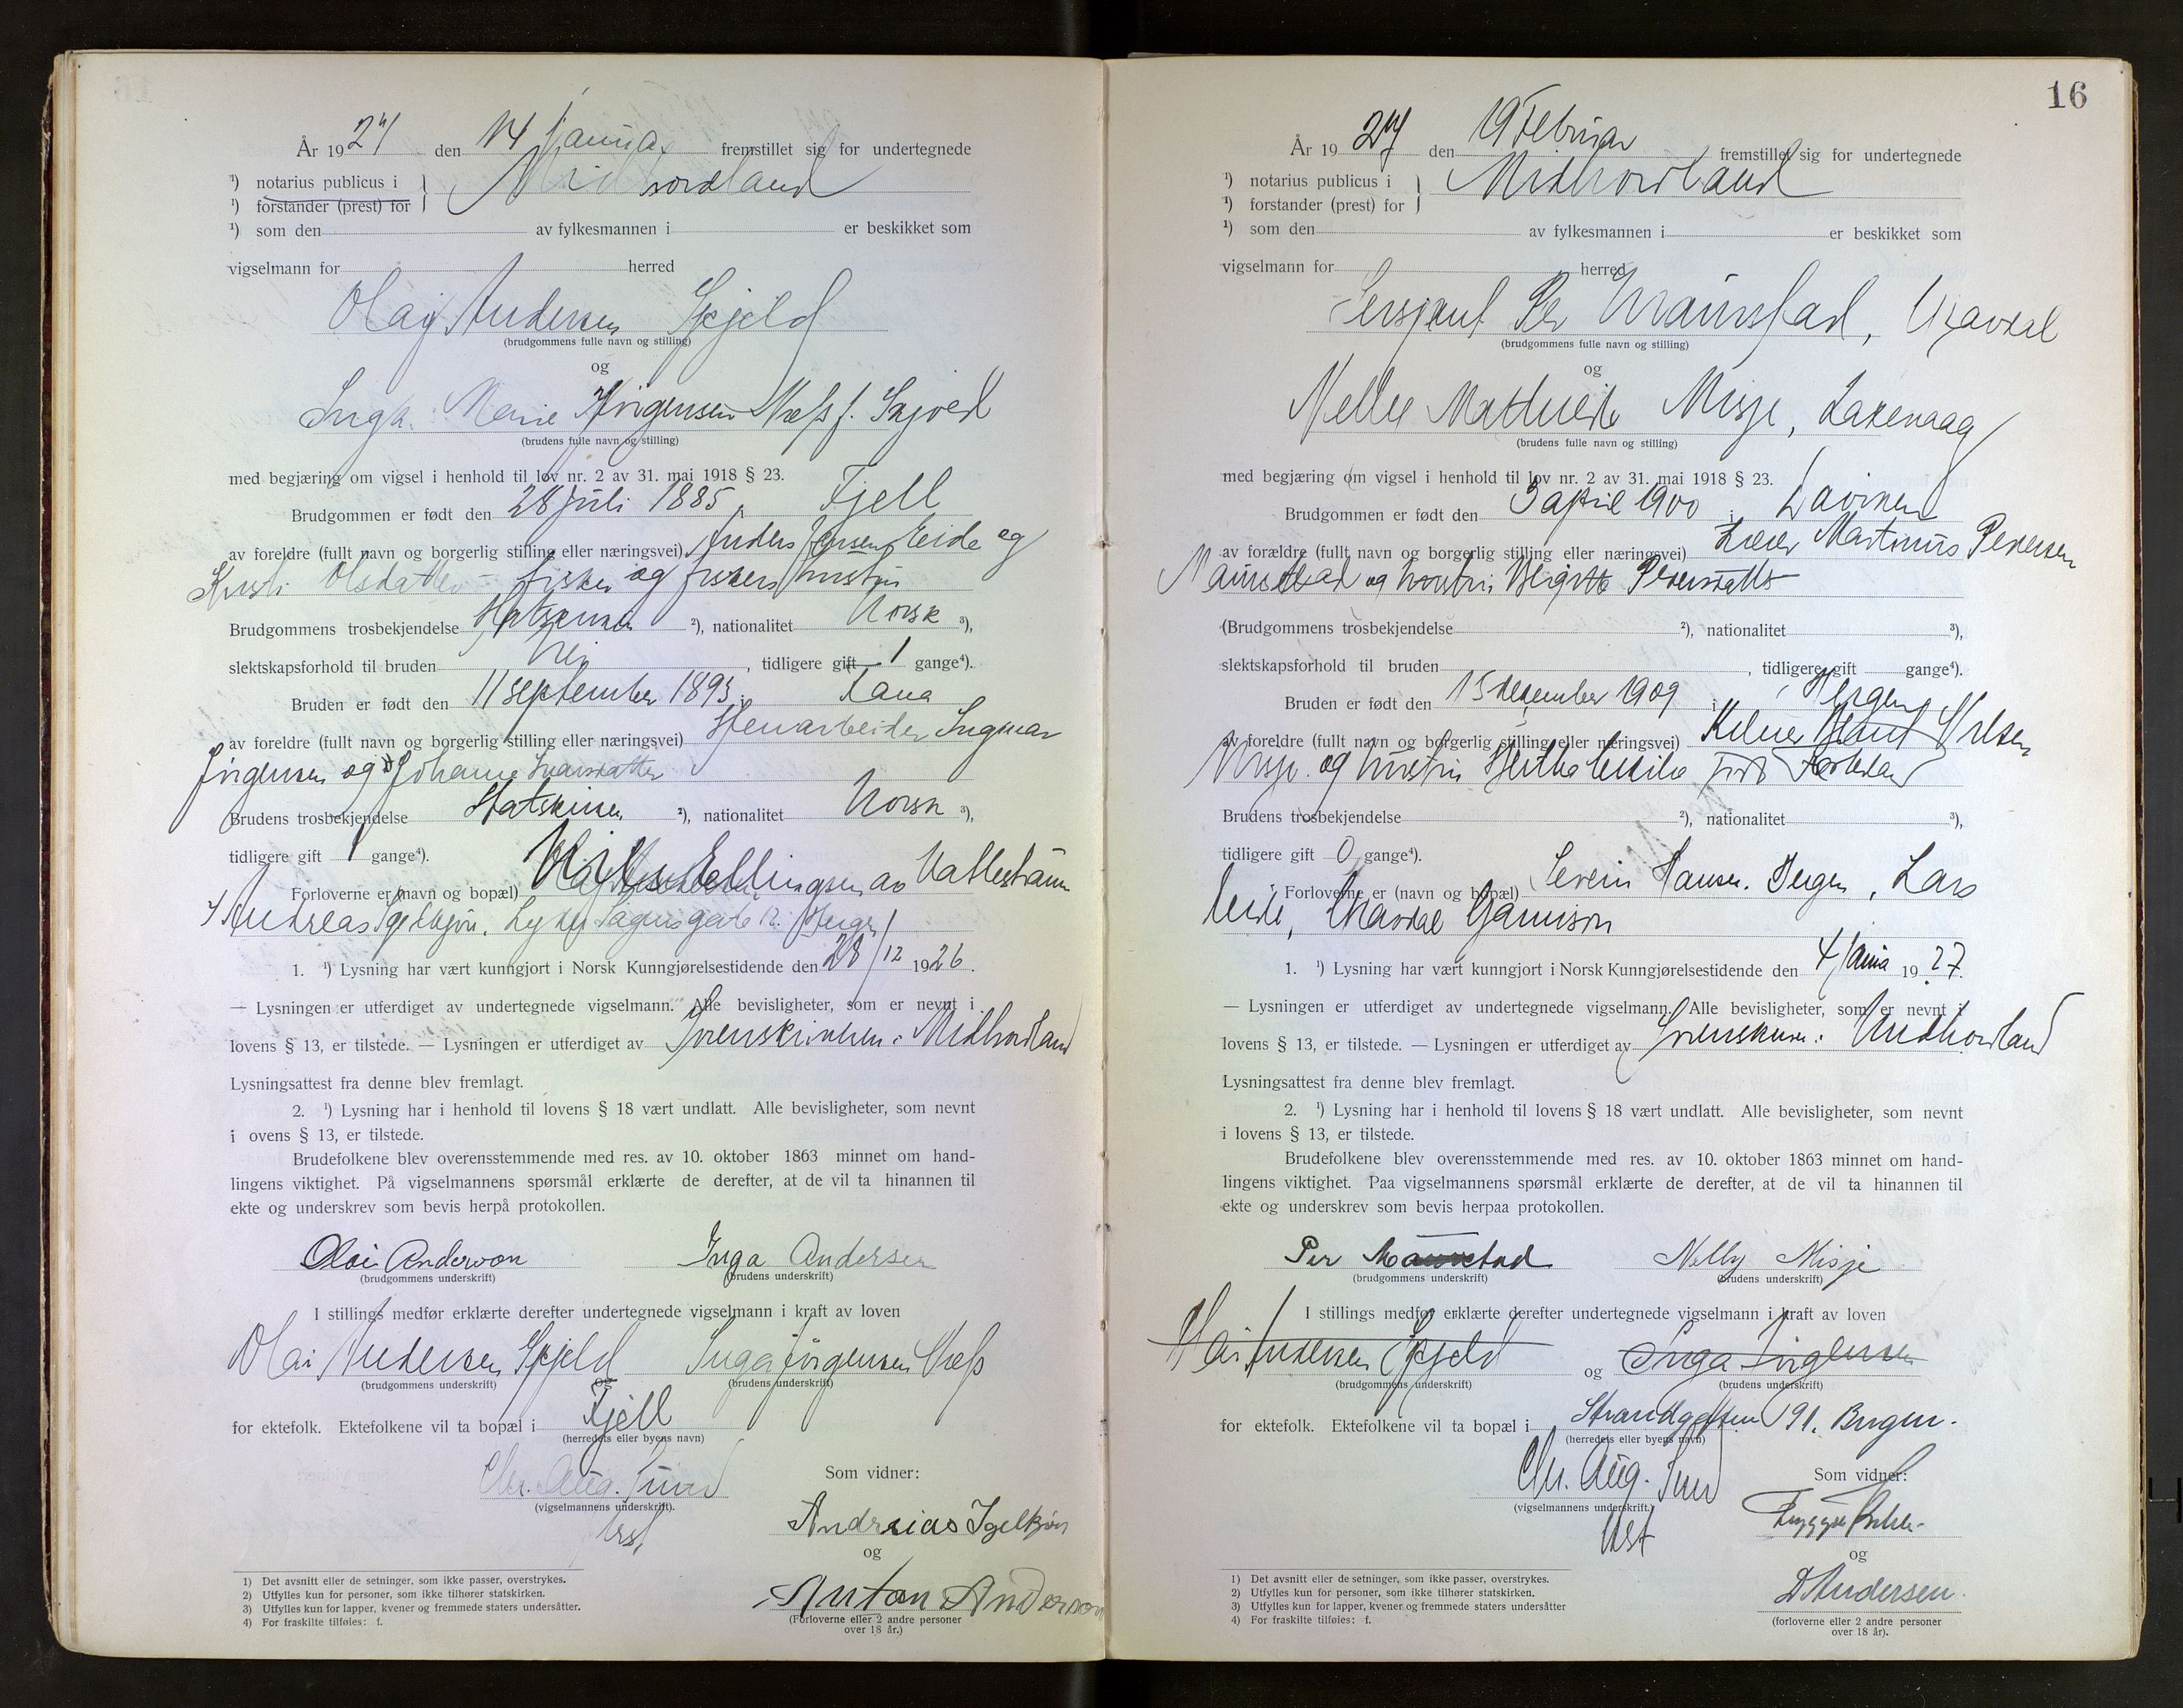 År 1927 den 14 Januar fremstillet sig for undertegnede
¹) notarius publicus i Midhordland
¹) forstander (prest) for
¹) som den av fylkesmannen i er beskikket som
vigselmann for herred
Olai Andersen Gjeld
(brudgommens fulle navn og stilling)
og
Inga Marie Jörgensen
(brudens fulle navn og stilling)
med begjæring om vigsel i henhold til lov nr. 2 av 31. mai 1918 § 23.
Brudgommen er født den 28 juli 1885 i Fjell
av foreldre (fullt navn og borgerlig stilling eller næringsvei) Anders Jensen Eide og
Kirsti Olsdatter - fisker og fiskers hustru
Brudgommens trosbekjendelse Statskirken ²), nationalitet Norsk ³),
slektskapsforhold til bruden Nei, tidligere gift 1 gange⁴).
Bruden er født den 11 september 1893 i Rana
av foreldre (fullt navn og borgerlig stilling eller næringsvei) Stenarbeider Ingmar
Jörgensen og Johanna Ivarsdatter
Brudens trosbekjendelse Statskirken ²), nationalitet Norsk ³),
tidligere gift 1 gange⁴).
Forloverne er (navn og bopæl) Ellingsen av
Andreas Igelkjön, Lyder Sagens gate 12 Bergen
1. ¹) Lysning har vært kunngjort i Norsk Kunngjørelsestidende den 28/12 1926.
— Lysningen er utferdiget av undertegnede vigselmann. Alle bevisligheter, som er nevnt i
lovens § 13, er tilstede. — Lysningen er utferdiget av Sorenskriveren i Midhordland
Lysningsattest fra denne blev fremlagt.
2. ¹) Lysning har i henhold til lovens § 18 vært undlatt. Alle bevisligheter, som nevnt
i ovens § 13, er tilstede.
Brudefolkene blev overensstemmende med res. av 10. oktober 1863 minnet om hand-
lingens viktighet. På vigselmannens spørsmål erklærte de derefter, at de vil ta hinannen til
ekte og underskrev som bevis herpå protokollen.
Olai Anderson Inga Andersen
(brudgommens underskrift) (brudens underskrift)
I stillings medfør erklærte derefter undertegnede vigselmann i kraft av loven
Olai Andersen Gjeld Inga Jörgensen
(brudgommens underskrift) og (brudens underskrift)
for ektefolk. Ektefolkene vil ta bopæl i Fjell
(herredets eller byens navn)
Chr. Aug. Sund Som vidner:
(vigselmannens underskrift).
Andreas Igelkjön
og
Anton Anderson
(Forloverne eller 2 andre personer
over 18 år.)
1) Det avsnitt eller de setninger, som ikke passer, overstrykes.
2) Utfylles kun for personer, som ikke tilhører statskirken.
3) Utfylles kun for lapper, kvener og fremmede staters undersåtter.
4) For fraskilte tilføies: f.
16
År 1927 den 19 Februar fremstillet sig for undertegnede
¹) notarius publicus i Midhordland
¹) forstander (prest) for
¹) som den av fylkesmannen i er beskikket som
vigselmann for herred
Sersjant Per Maurstad, Ulven
(brudgommens fulle navn og stilling)
og
Nelly Mathilde Misje, Laksevaag
(brudens fulle navn og stilling)
med begjæring om vigsel i henhold til lov nr. 2 av 31. mai 1918 § 23.
Brudgommen er født den 3 april 1900 i Daviken
av forældre (fullt navn og borgerlig stilling eller næringsvei) Lærer Martinus Pedersen
Maurstad og hustru Birgitte Pedersdatter
(Brudgommens trosbekjendelse ²), nationalitet ³),
slektskapsforhold til bruden , tidligere gift gange⁴).
Bruden er født den 15 desember 1909 i Bergen
av foreldre (fullt navn og borgerlig stilling eller næringsvei) Nilsen
Misje og hustru Bertha Cecilie född
Brudens trosbekjendelse ²), nationalitet ³),
tidligere gift 0 gange⁴).
Forloverne er (navn og bopæl) Severin Hansen, Bergen, Lars
Eide, Garnison
1. ¹) Lysning har vært kunngjort i Norsk Kunngjørelsestidende den 4 Janua 1927.
— Lysningen er utferdiget av undertegnede vigselmann. Alle bevisligheter, som er nevnt i
lovens § 13, er tilstede. — Lysningen er utferdiget av Sorenskriveren i Midhordland
Lysningsattest fra denne blev fremlagt.
2. ¹) Lysning har i henhold til lovens § 18 vært undlatt. Alle bevisligheter, som nevnt
i lovens § 13, er tilstede.
Brudefolkene blev overensstemmende med res. av 10. oktober 1863 minnet om hand-
lingens viktighet. Paa vigselmannens spørsmål erklærte de derefter, at de vil ta hinannen til
ekte og underskrev som bevis herpaa protokollen.
Per Maurstad Nelly Misje
(brudgommens underskrift) (brudens underskrift)
I stillings medfør erklærte derefter undertegnede vigselmann i kraft av loven
Olai Andersen Gjeld og Inga Jörgensen
(brudgommens underskrift) (brudens underskrift)
for ektefolk. Ektefolkene vil ta bopæl i Strandgaten 191. Bergen.
(herredets eller byens navn)
Chr. Aug. Sund Som vidner:
(vigselmannens underskrift.)
og
D Andersen.
(forloverne eller 2 andre personer
over 18 år).
1) Det avsnitt eller de setninger, som ikke passer, overstrykes.
2) Utfylles kun for personer, som ikke tilhører statskirken.
3) Utfylles kun for lapper, kvener og fremmede staters undersåtter
4) For fraskilte tilføies: f.